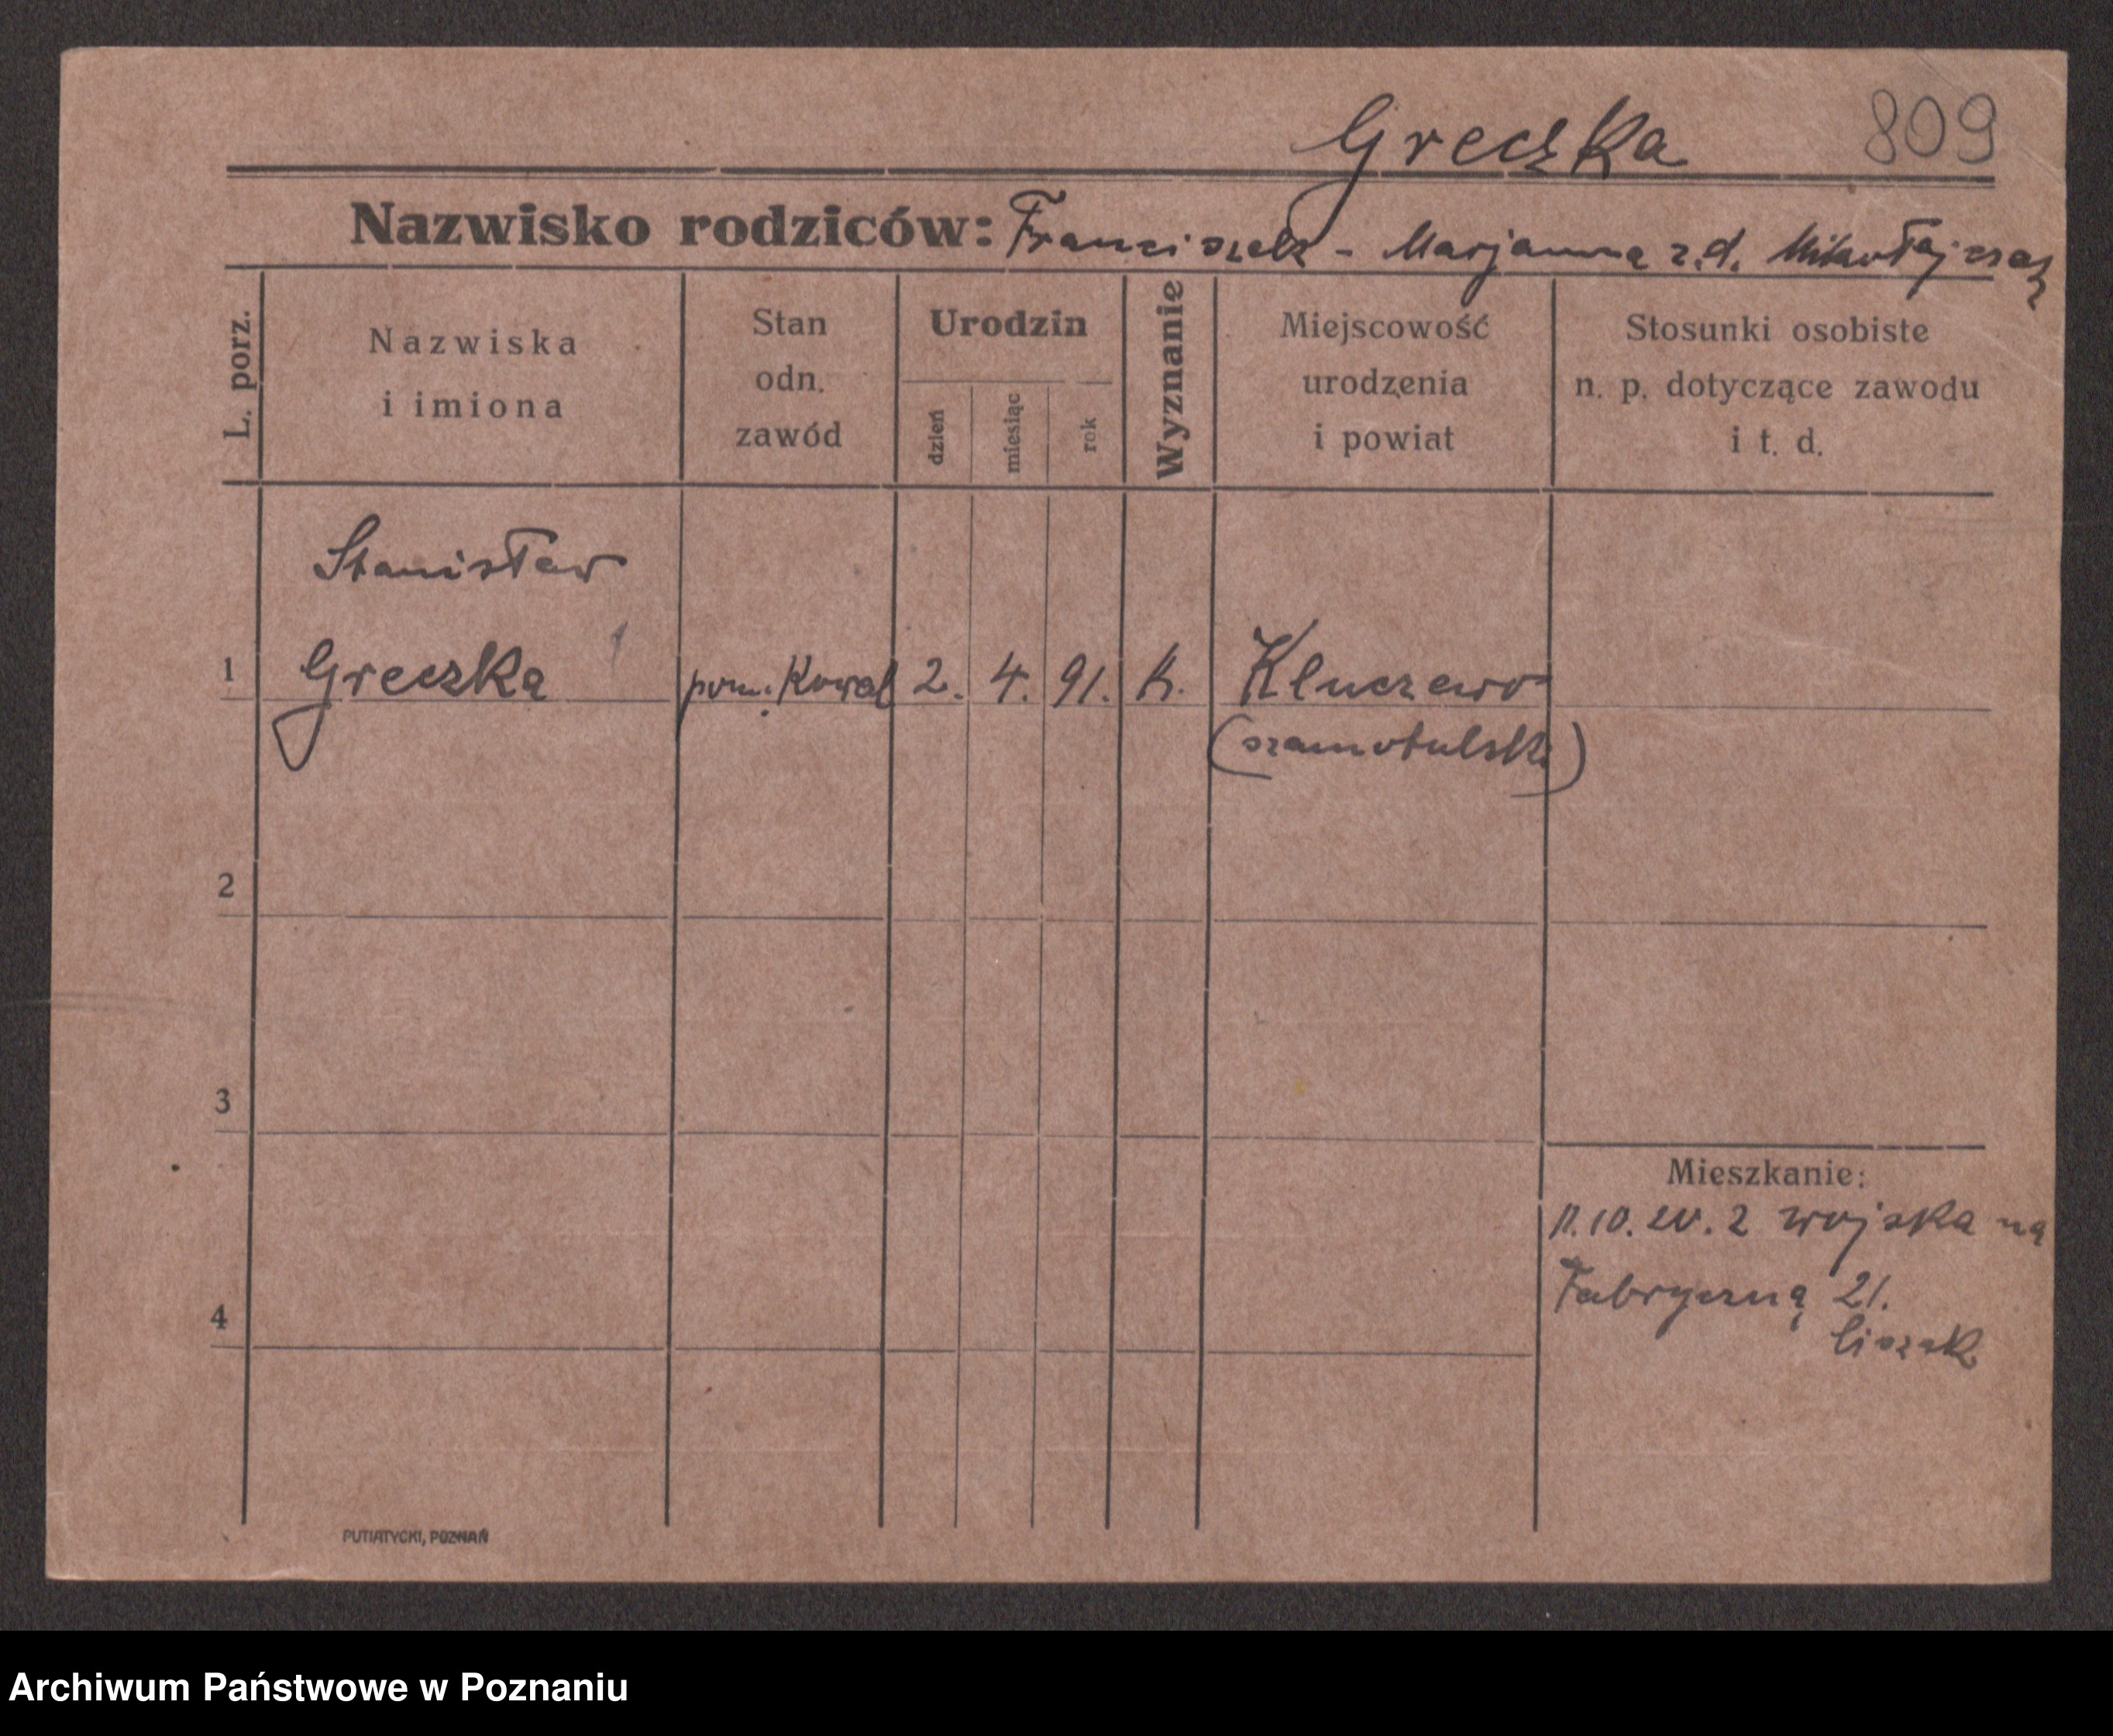 Greczka 809
Nazwisko rodziców: Franciszek - Marjanna z.d. Mikołajczak
L. porz.
Nazwiska
i imiona
Stan
odn.
zawód
Urodzin
dzień
miesiąc
rok
Wyznanie
Miejscowość
urodzenia
i powiat
Stosunki osobiste
n. p. dotyczące zawodu
i t. d.
Stanisław
1 Greczka pom. Kowal 2. 4. 91. K. Kluczewo
(szamotulski)
2
3
Mieszkanie:
11.10.20. z wojska na
4 Fabryczną 21.
PUTIATYCKI, POZNAŃ
Archiwum Państwowe w Poznaniu